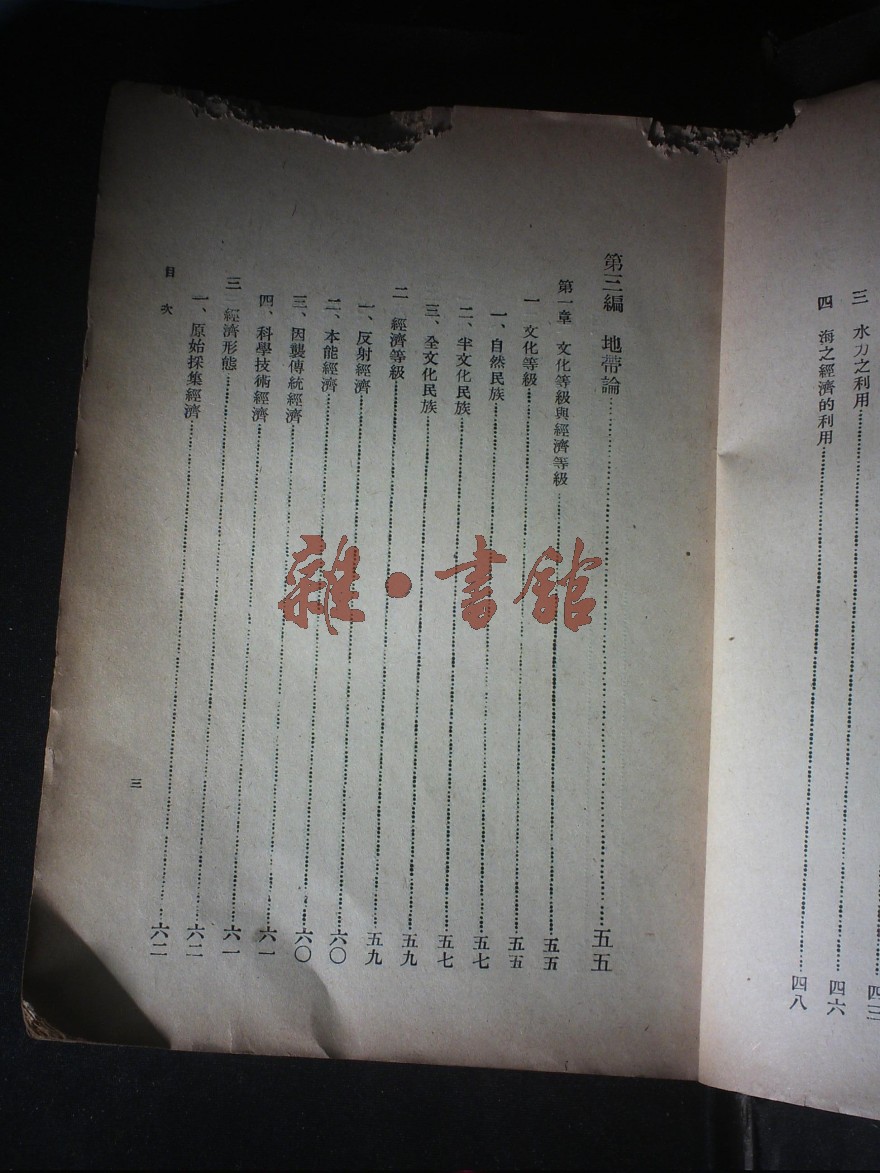 四三
三 水力之利用……四六
四 海之經濟的利用……四八
第三編 地帶論……五五
第一章 文化等級與經濟等級……五五
一 文化等級……五五
一、自然民族……五七
二、半文化民族……五七
三、全文化民族……五九
二 經濟等級……五九
一、反射經濟……六〇
二、本能經濟……六〇
三、因襲傳統經濟……六一
四、科學技術經濟……六一
三 經濟形態……六二
一、原始採集經濟……六二
目次
三
雜·書館